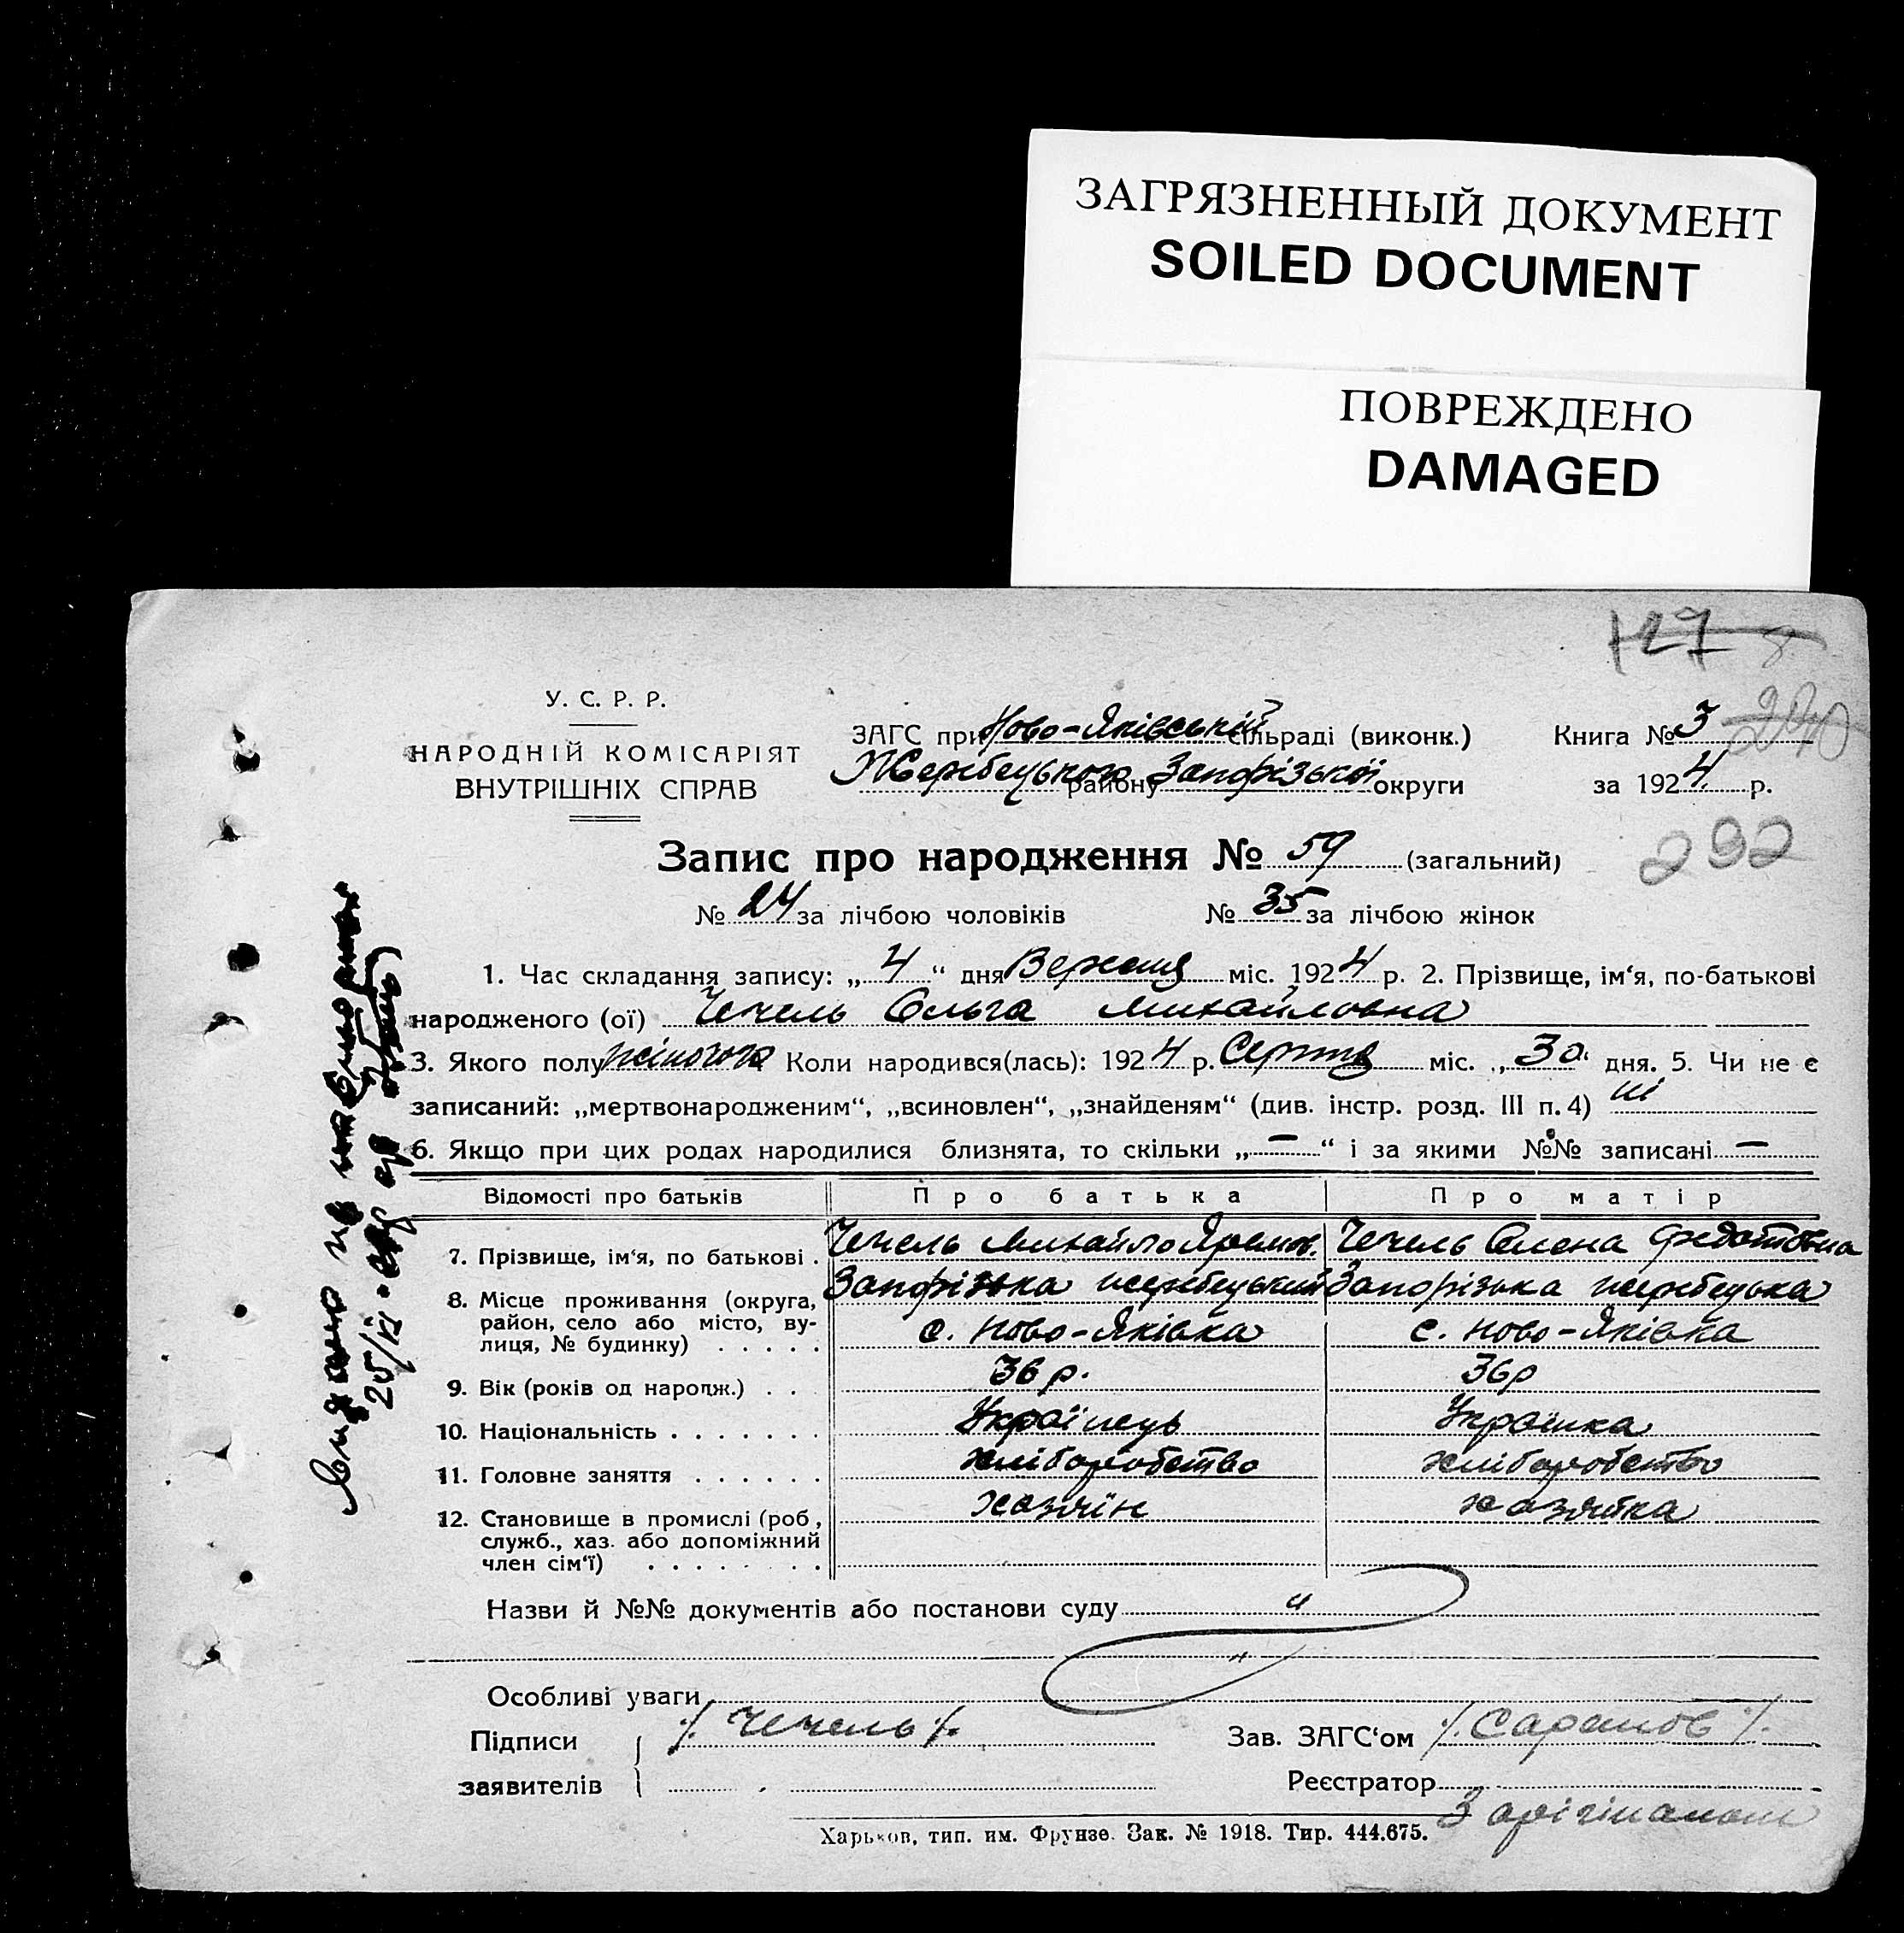 ЗАГРЯЗНЕННЫЙ ДОКУМЕНТ
SOILED DOCUMENT
ПОВРЕЖДЕНО
DAMAGED
127
У. С. Р. Р.
НАРОДНІЙ КОМІСАРІЯТ
ВНУТРІШНІХ СПРАВ
ЗАГС при Ново-Яківській сільраді (виконк.)
Жеребецького району Запорізької округи
Книга № 3
за 1924 р.
290
292
Запис про народження № 59 (загальний)
№ 24 за лічбою чоловіків № 35 за лічбою жінок
1. Час складання запису: „4“ дня Вересня міс. 1924 р. 2. Прізвище, ім‘я, по-батькові
народженого (ої) Чечель Ольга Михайловна
3. Якого полу жіночого Коли народився(лась): 1924 р. Серпня міс. „30“ дня. 5. Чи не є
записаний: „мертвонародженим“, „всиновлен“, „знайденям“ (див. інстр. розд. III п. 4) ні
6. Якщо при цих родах народилися близнята, то скільки „—“ і за якими №№ записані —
Відомості про батьків Про батька Про матір
7. Прізвище, ім‘я, по батькові . Чечель Михайло Яремов. Чечель Олена Федотовна
8. Місце проживання (округа, Запорізька жеребецький Запорізька жеребецька
район, село або місто, ву-
лиця, № будинку) . . . . . с. Ново-Яківка с. Ново-Яківка
9. Вік (років од народж.) . . 36 р. 36 р
10. Національність . . . . . . . Українець Українка
11. Головне заняття . . . . . . хліборобство хліборобство
12. Становище в промислі (роб., хазяїн хазяйка
служб., хаз. або допоміжний
член сім‘ї) . . . . . . .
Назви й №№ документів або постанови суду "
"
Особливі уваги
Підписи /. Чечель /. Зав. ЗАГС‘ом /. Саранов /.
заявителів Реєстратор
З орігіналом
Харьков, тип. им. Фрунзе. Зак. № 1918. Тир. 444.675.
25/IX